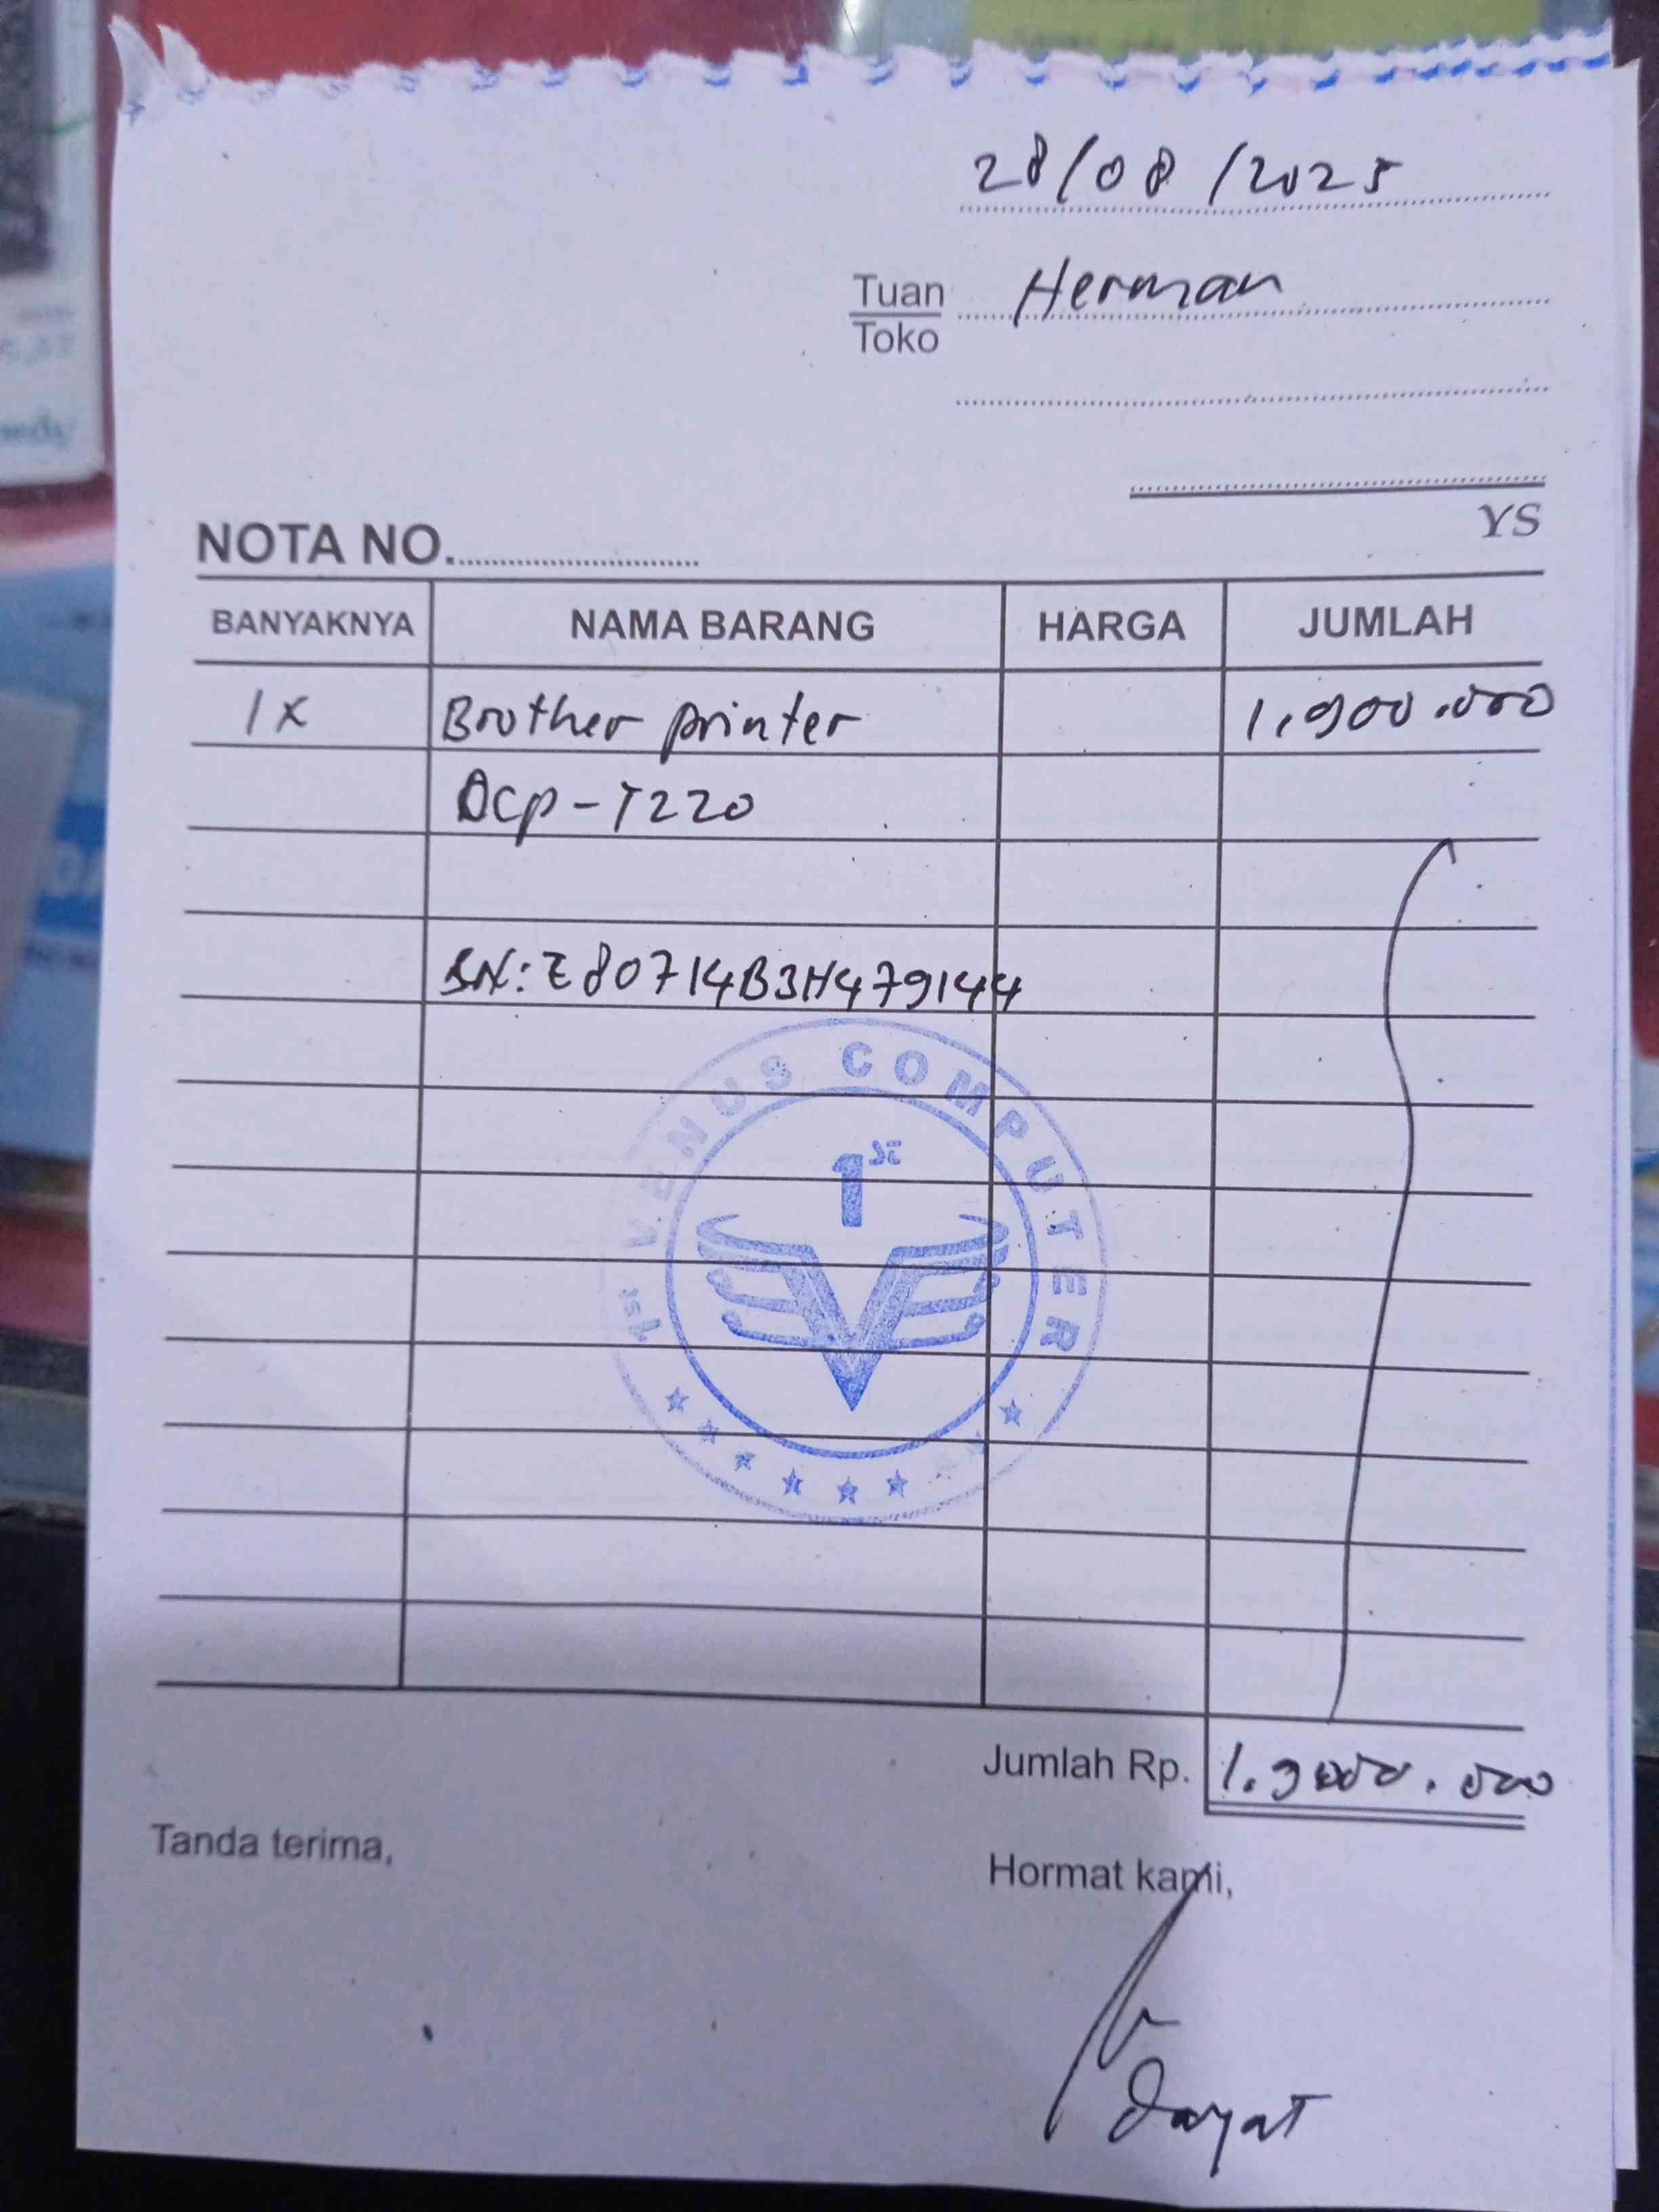 28/08/2025
Tuan Herman
Toko
YS
NOTA NO.
BANYAKNYA NAMA BARANG HARGA JUMLAH
1x Brother printer 1.900.000
Dcp-T220
SN: E80714B3H479144
1ST VENUS COMPUTER
1st
V
Jumlah Rp. 1.9000.000
Tanda terima,
Hormat kami,
Dayat